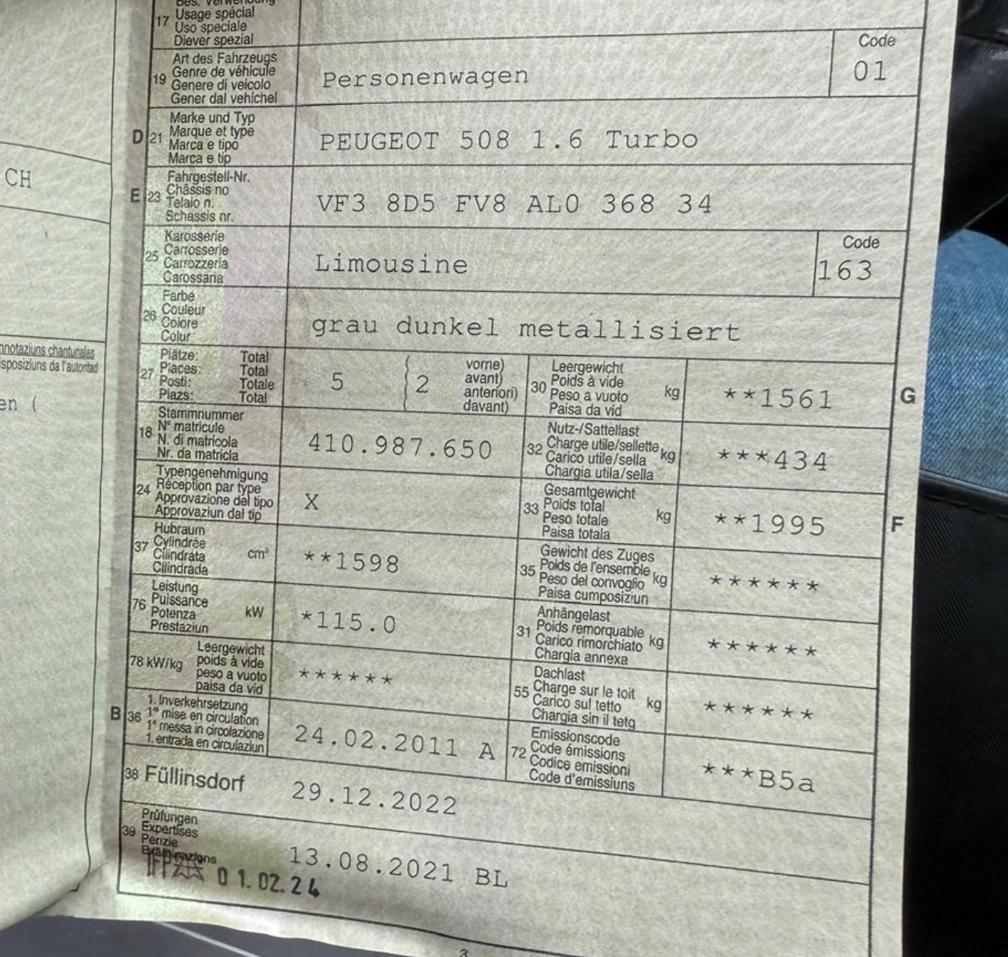 Bes. Verwendung
17 Usage spécial
Uso speciale
Diever spezial
19 Art des Fahrzeugs
Genre de véhicule
Genere di veicolo
Gener dal vehichel
Personenwagen
Code
01
D 21 Marke und Typ
Marque et type
Marca e tipo
Marca e tip
PEUGEOT 508 1.6 Turbo
CH
E 23 Fahrgestell-Nr.
Châssis no
Telaio n.
Schassis nr.
VF3 8D5 FV8 AL0 368 34
25 Karosserie
Carrosserie
Carrozzeria
Carossaria
Limousine
Code
163
26 Farbe
Couleur
Colore
Colur
grau dunkel metallisiert
nnotaziuns chantunalas
sposiziuns da l'autoritad
en (
27 Plätze: Total
Places: Total
Posti: Totale
Plazs: Total
5 ( 2 vorne)
avant)
anteriori)
davant)
30 Leergewicht
Poids à vide
Peso a vuoto
Paisa da vid
kg
**1561 G
18 Stammnummer
N° matricule
N. di matricola
Nr. da matricla
410.987.650
32 Nutz-/Sattellast
Charge utile/sellette
Carico utile/sella
Chargia utila/sella
kg
***434
24 Typengenehmigung
Réception par type
Approvazione del tipo
Approvaziun dal tip
X
33 Gesamtgewicht
Poids total
Peso totale
Paisa totala
kg
**1995 F
37 Hubraum
Cylindrée
Cilindrata
Cilindrada
cm³
**1598
35 Gewicht des Zuges
Poids de l'ensemble
Peso del convoglio
Paisa cumposiziun
kg
******
76 Leistung
Puissance
Potenza
Prestaziun
kW
*115.0
31 Anhängelast
Poids remorquable
Carico rimorchiato
Chargia annexa
kg
******
78 kW/kg Leergewicht
poids à vide
peso a vuoto
paisa da vid
******
55 Dachlast
Charge sur le toit
Carico sul tetto
Chargia sin il tetg
kg
******
B 36 1. Inverkehrsetzung
1re mise en circulation
1a messa in circolazione
1. entrada en circulaziun
24.02.2011 A
72 Emissionscode
Code émissions
Codice emissioni
Code d'emissiuns
***B5a
38 Füllinsdorf 29.12.2022
39 Prüfungen
Expertises
Perizie
Examinaziuns
13.08.2021 BL
01.02.24
3